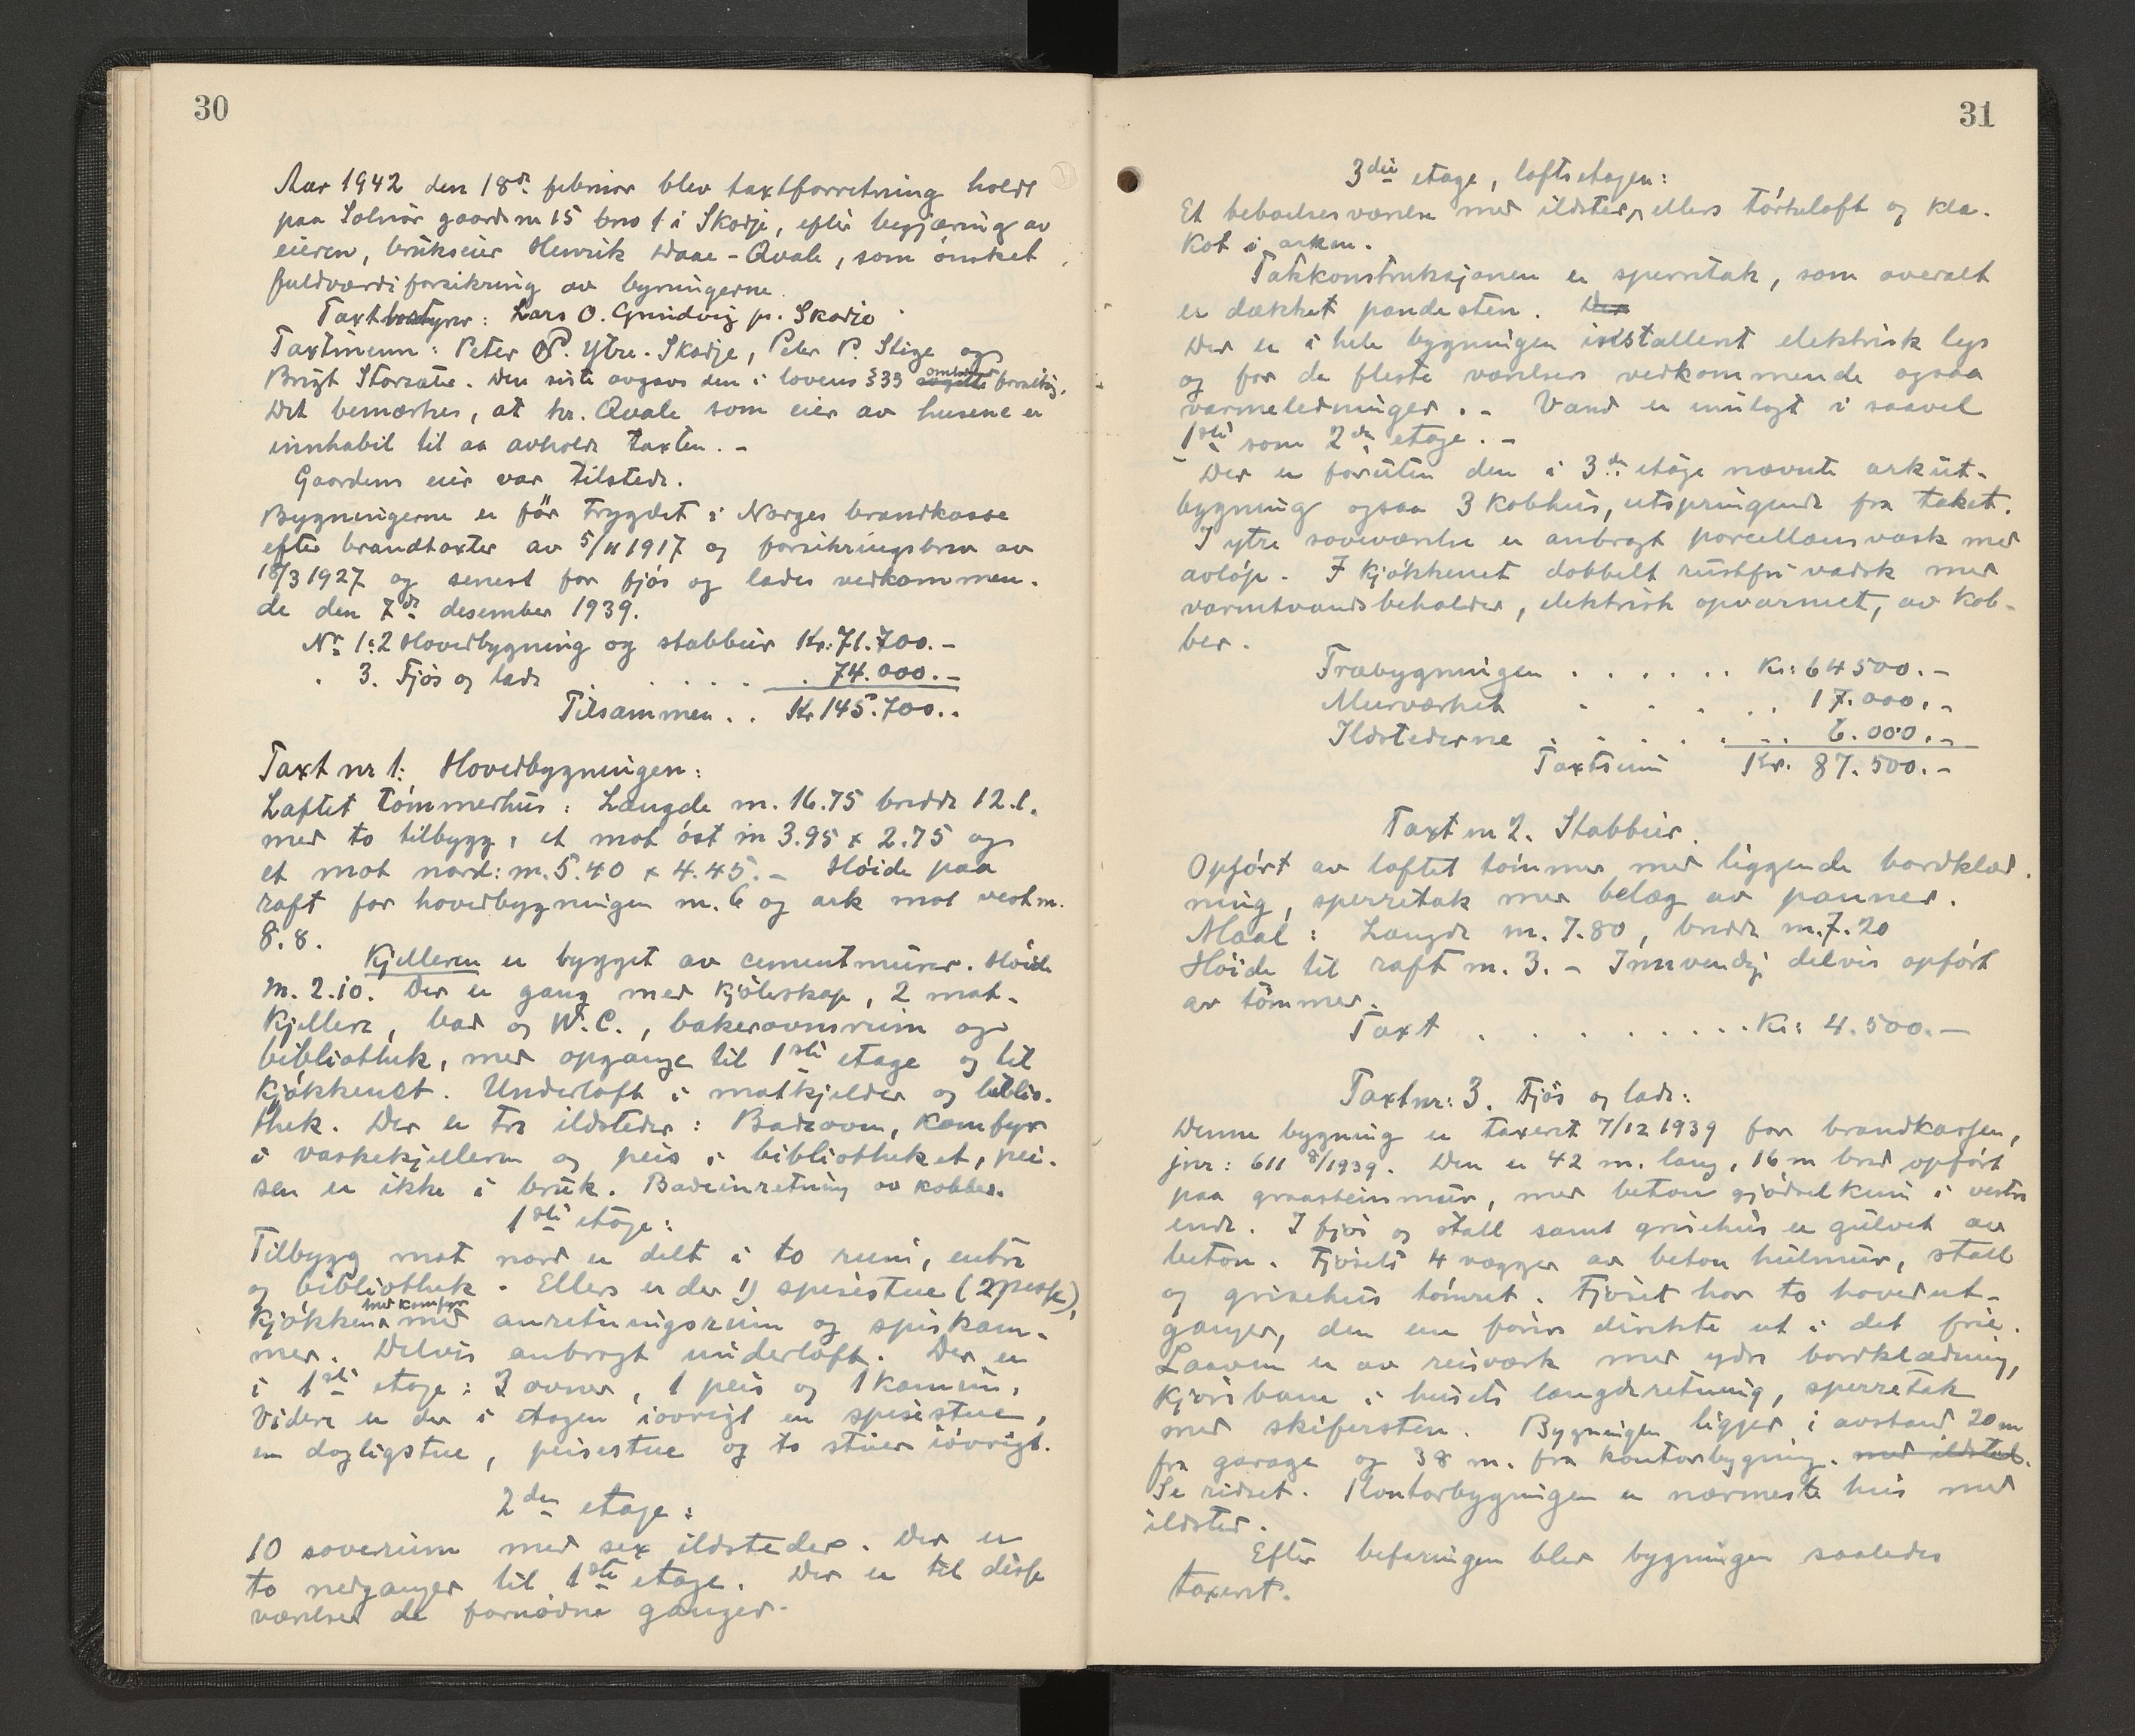 30
Aar 1942 den 18de februar blev taxtforretning holdt
paa Solnør gaardsnr 15 bno 1 i Skodje, efter begjæring av
eieren, brukseier Henrik Waae-Qvale, som ønsket
fuldværdiforsikring av bygningerne.
Taxtbestyrer: Lars O. Grindvig pr. Skodje
Taxtmenn: Peter P. Ytre-Skodje, Peter P. Stige og
Brigt Storsæter. Den siste avgav den i lovens §33 omhandlede forsikring.
Det bemærkes, at hr. Qvale som eier av husene er
innhabil til aa avholde taxten. -
Gaardens eier var tilstede.
Bygningerne er før trygdet i Norges brandkasse
efter brandtaxter av 5/11 1917 og forsikringsbrev av
18/3 1927 og senest for fjøs og lades vedkommen-
de den 7de desember 1939.
Nr 1:2 Hovedbygning og stabbur Kr: 71.700.-
" 3. Fjøs og lade . . . . . . 74.000.-
Tilsammen . . Kr 145.700.-
Taxt nr 1: Hovedbygningen:
Laftet tømmerhus: Længde m. 16.75 bredde 12.1.
med to tilbygg: et mot øst m 3.95 x 2.75 og
et mot nord: m. 5.40 x 4.45. - Høide paa
raft for hovedbygningen m. 6 og ark mot vest m.
8.8.
Kjelleren er bygget av cementmurer. Høide
m. 2.10. Der er gang med kjøleskap, 2 mat-
kjellere, bad og W.C., bakerovnsrum og
bibliothek, med opgange til 1ste etage og til
kjøkkenet. Underloft i matkjelder og biblio-
thek. Der er tre ildsteder: Badeovn, Komfyr
i vaskekjelleren og peis i bibliotheket, pei-
sen er ikke i bruk. Badeinretning av kobber.
1ste etage:
Tilbygg mot nord er delt i to rum, entre
og bibliothek. Ellers er der 1) spisestue (2 peise),
Kjøkken med komfyr med anretningsrum og spiskam-
mer. Delvis anbragt underloft. Der er
i 1ste etage: 3 ovner, 1 peis og 1 kamin.
Videre er der i etagen iøvrigt en spisestue,
en dagligstue, peisestue og to stuer iøvrigt.
2den etage:
10 soverum med sex ildsteder. Der er
to nedganger til 1ste etage. Der er til disse
værelser de fornødne ganger.
31
3die etage, loftsetagen:
Et beboelsesværelse med ildsted, ellers tørkeloft og kla-
kot i arken.
Takkonstruksjonen er sperretak, som overalt
er dækket pandesten. Der
Der er i hele bygningen installert elektrisk lys
og for de fleste værelsers vedkommende ogsaa
varmeledninger. - Vand er innlagt i saavel
1ste som 2den etage. -
Der er foruten den i 3die etage nævnte arkut-
bygning ogsaa 3 kobhus, utspringende fra taket.
I ytre soveværelse er anbragt porcellænsvask med
avløp. I kjøkkenet dobbelt rustfri vadsk med
varmtvandsbeholder, elektrisk opvarmet, av kob-
ber.
Træbygningen . . . . . . Kr: 64 500.-
Murværket . . . . . 17.000.-
Ildstederne . . . . . . 6.000.-
Taxtsum Kr. 87.500.-
Taxt nr 2. Stabbur.
Opført av laftet tømmer med liggende bordklæd-
ning, sperretak med belæg av panner.
Maal: Længde m. 7.80, bredde m. 7.20
Høide til raft m. 3. - Innvendig delvis opført
av tømmer.
Taxt . . . . . . . . Kr: 4.500.-
Taxt nr: 3. Fjøs og lade:
Denne bygning er taxeret 7/12 1939 for brandkassen,
jnr: 611 8/1939. Den er 42 m. lang, 16 m bred opført
paa graasteinsmur, med beton gjødselkum i vestre
ende. I fjøs og stall samt grisehus er gulvet av
beton. Fjøsets 4 vægger av beton hulmur, stall
og grisehus tømret. Fjøset har to hovedut-
ganger, den ene fører direkte ut i det frie.
Laaven er av reisværk med ydre bordklædning,
kjørebane i husets længderetning, sperretak
med skifersten. Bygningen ligger i avstand 20 m
fra garage og 38 m. fra kontorbygning. med ildsted.
Se risset. Kontorbygningen er nærmeste hus med
ildsted.
Efter befaringen blev bygningen saaledes
taxeret.